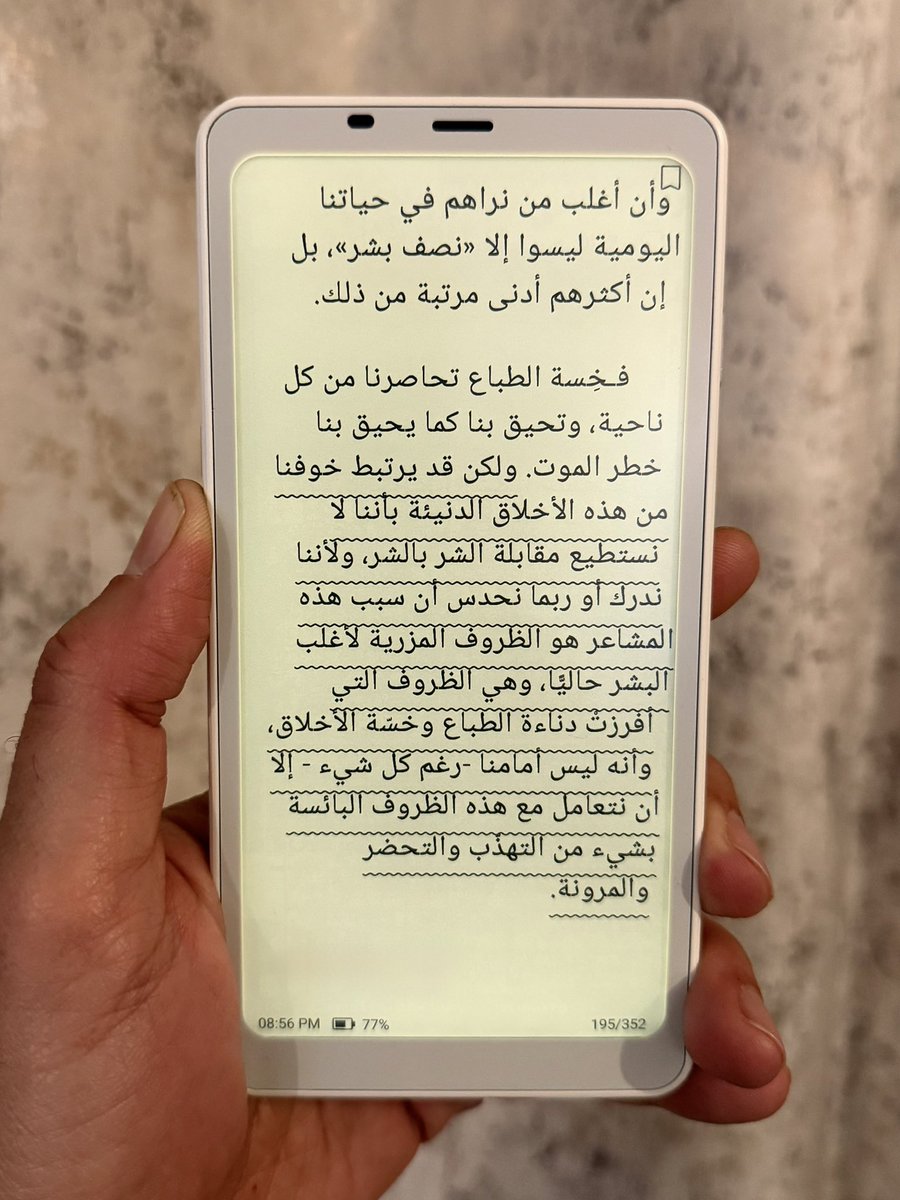 وأن أغلب من نراهم في حياتنا
اليومية ليسوا إلا «نصف بشر»، بل
إن أكثرهم أدنى مرتبة من ذلك.
فـخِسة الطباع تحاصرنا من كل
ناحية، وتحيق بنا كما يحيق بنا
خطر الموت. ولكن قد يرتبط خوفنا
من هذه الأخلاق الدنيئة بأننا لا
نستطيع مقابلة الشر بالشر، ولأننا
ندرك أو ربما نحدس أن سبب هذه
المشاعر هو الظروف المزرية لأغلب
البشر حاليًا، وهي الظروف التي
أفرزتْ دناءة الطباع وخسّة الأخلاق،
وأنه ليس أمامنا -رغم كل شيء - إلا
أن نتعامل مع هذه الظروف البائسة
بشيء من التهذّب والتحضر
والمرونة.
08:56 PM 77% 195/352